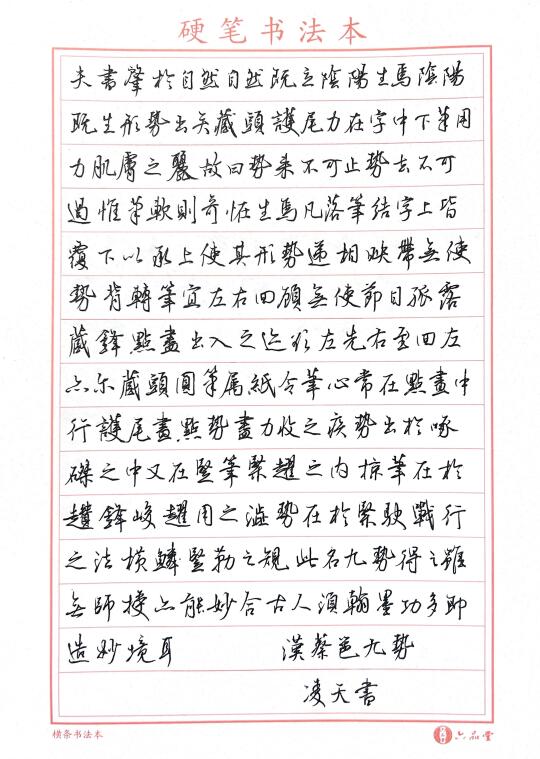 硬笔书法本
夫書肇於自然自然既立陰陽生焉陰陽
既生形勢出矣藏頭護尾力在字中下筆用
力肌膚之麗故曰勢来不可止勢去不可
遏惟筆軟則奇怪生焉凡落筆結字上皆
覆下以承上使其形勢遞相映帶無使
勢背轉筆宜左右回顧無使節目孤露
藏鋒點畫出入之迹欲左先右至回左
亦尔藏頭圓筆属紙令筆心常在點畫中
行護尾畫點勢盡力收之疾勢出於啄
磔之中又在竪筆緊趯之内掠筆在於
趲鋒峻趯用之澁勢在於緊駛戰行
之法横鱗竪勒之規此名九勢得之雖
無師授亦能妙合古人須翰墨功多即
造妙境耳
漢蔡邕九勢
凌天書
横条书法本
六品堂